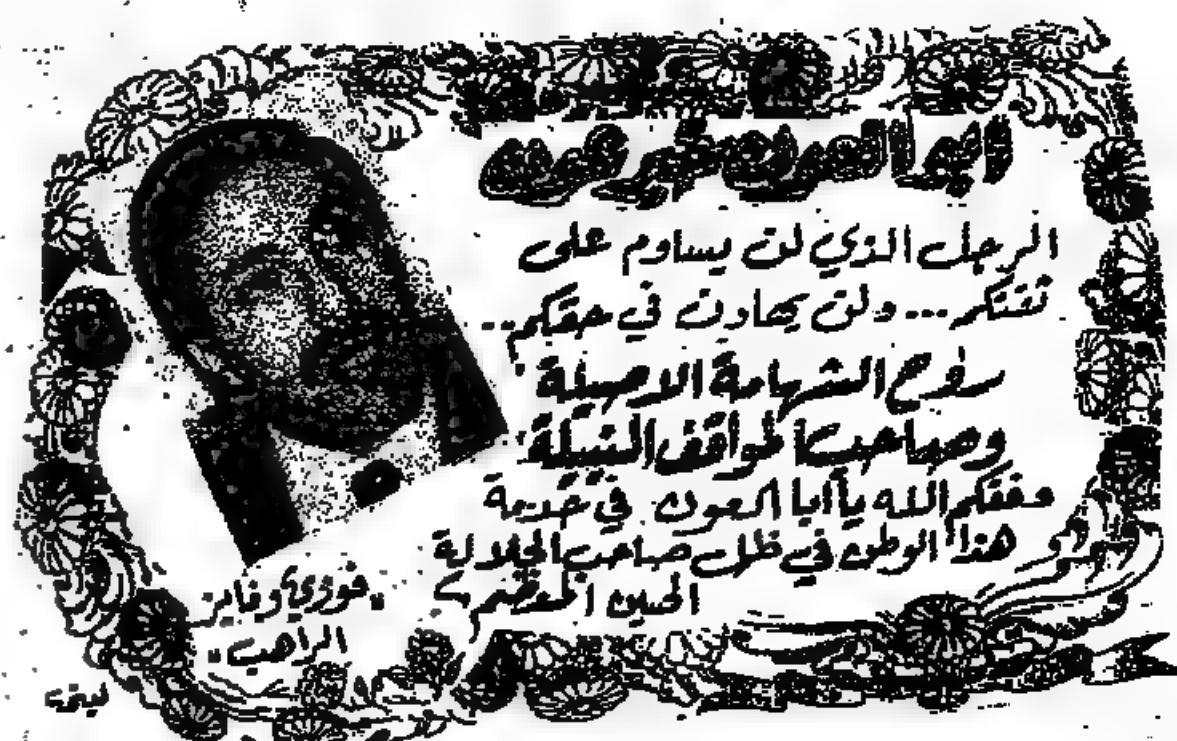 ابو العون خير عون
الرجل الذي لن يساوم على
ثقتكم... ولن يهادن في حقكم..
روح الشهامة الاصيلة
وصاحب المواقف النبيلة
وفقكم الله يا ابا العون في خدمة
هذا الوطن في ظل صاحب الجلالة
الحسين المعظم
"فوزي وفايز
الراهب"